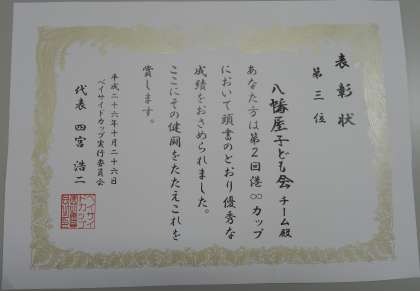 表彰状
第三位
八幡屋子ども会 チーム殿
あなた方は第2回港∞カップ
において頭書のとおり優秀な
成績をおさめられました。
ここにその健闘をたたえこれを
賞します。
平成二十六年十月二十六日
ベイサイドカップ実行委員会
代表 四宮 浩二